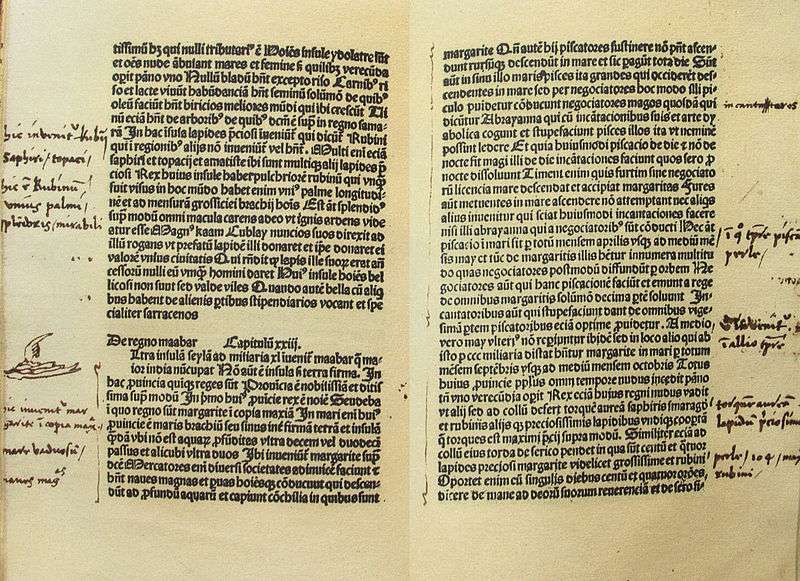 tissimũ hʒ qui nulli tributari⁹ ẽ Hoĩes insule ydolatre sũt
et oẽs nude ãbulant mares et femine sʒ quilibʒ verecũda
opit pãno vno Nullũ bladũ hñt excepto riso Carnibʒ ri
so et lacte viuũt habũdanciã hñt seminũ solũmõ de quibʒ
oleũ faciũt hñt biricios meliores mũdi qui ibi crescũt Ui
nũ eciã hñt de arboribʒ de quibʒ dc̃m ẽ supra in regno sama
rã In hac ĩsula lapides p̃ciosi ĩueniũt᷑ qui dicũt᷑ Rubini
qui ĩ regionibʒ alijs nõ inueniũt᷑ vel hñt᷑. Multi eni eciã
saphiri et topacij et amatiste ibi sunt multiqʒ alij lapides p̃
ciosi Rex huius insule habet pulchriorẽ rubinũ qui vnqʒ
fuit visus in hoc mũdo habet enim vni⁹ palme longitudi
nẽ et ad mensurã grossiciei brachij hoĩs Est aũt splẽdid⁹
sup modũ omni macula carens adeo vt ignis ardens vide
atur esse Magn⁹ kaam Cublay nuncios suos direxit ad
illũ rogans vt prefatũ lapidẽ illi donaret et ipe donaret ei
valorẽ vnius ciuitatis Qui rñdit qʒ lapis ille suorʒ erat ãn
cessorũ nulli eũ vnqʒ homini daret Hui⁹ insule hoiẽs bel
licosi non sunt sed valde viles Quando autẽ bella cũ aliq̃
bus habent de alienis ptibus stipendiarios vocant et spe
cialiter sarracenos
De regno maabar Capitulũ xxiij.
Ultra insulã seylã ad miliaria xl inuenit᷑ maabar q̃ ma
ior india nũcupat᷑ Nõ aũt ẽ insula sʒ terra firma. In
hac puincia quinqʒ reges sũt Prouincia ẽ nobilissiã et ditis
sima sup modũ In p̃mo hui⁹ puicie rex ẽ noiẽ Seudeba
ĩ quo regno sũt margarite ĩ copia maxiã In mari eni hui⁹
puincie ẽ maris brachiũ seu sinus inẽ firmã terrã et insulã
quãdã vbi nõ est aquarʒ pfũditas vltra decem vel duodecĩ
passus et alicubi vltra duos Ibi inueniũt᷑ margarite sup
dc̃e Mercatores eni diuersi societates adinuicẽ faciunt et
hñt naues magnas et puas hoiẽsqʒ cõducunt qui descen
dũt ad pfundũ aquarũ et capiunt cõchilia in quibus sunt
margarite Qñ autẽ hij piscatores sustinere nõ pñt ascen
dunt rursusqʒ descendũt in mare et sic pagũt tota die Sũt
aũt in sinu illo maris pisces ita grandes qui occiderẽt des
cendentes in mare sed per negociatores hoc modo illi pi
culo puidetur cõducunt negociatores magos quosdã qui
dicũtur Abrayanna qui cũ incãtacionibus suis et arte dy
abolica cogunt et stupefaciunt pisces illos ita vt neminẽ
possint ledere Et quia huiusmodi piscacio de die et nõ de
nocte fit magi illi de die incãtaciones faciunt quos sero p
nocte dissoluunt Timent enim quis furtim sine negociato
rũ licencia mare descendat et accipiat margaritas Fures
aũt metuentes in mare ascendere nõ attemptant nec aliqs
alius inuenitur qui sciat huiusmodi incantaciones facere
nisi illi abrayanna qui a negociatoribʒ sũt cõducti Hec aũt
piscacio ĩ mari fit p totũ mensem aprilis vsqʒ ad mediũ mẽ
sis may et tũc de margaritis illis hẽtur innumera multitu
do quas negociatores postmodũ diffundũt p orbem Ne
gociatores aũt qui hanc piscacionẽ faciũt et emunt a rege
de omnibus margaritis solũmõ decima ptẽ soluunt In
cantatoribus aũt qui stupefaciunt dant de omnibus vige
simã ptem piscatoribus eciã optime puidetur. A medio
vero may vlteri⁹ nõ repiuntur ibidẽ sed in loco alio qui ab
isto p ccc miliaria distat hñtur margarite in mari p totum
mẽsem septẽbris vsqʒ ad mediũ mensem octobris Totus
huius puincie pplus omni tempore nudus incedit pãno
tñ vno verecũdia opit Rex eciã huius regni nudus vadit
vt alij sed ad collũ defert torquẽ aureã saphiris smaragdʒ
et rubinis alijsqʒ preciosissimis lapidibus vndiqʒ cooptã
q̃ torques est maximi p̃cij supra modũ. Similiter eciã ad
collũ eius corda de serico pendet in qua sũt centũ et quatuor
lapides preciosi margarite videlicet grossissime et rubini
Oportet enim eũ singulis diebus centũ et quatuor orões
dicere de mane ad deorũ suorum reuerenciã et de sero si-
hic invenit᷑ Rubin
Saphiri / topaci /
hic ẽ Rubinũ
vnius palmi /
splẽdẽs / mirabili
margarite ĩ copia maxi
mare vadosũ /
naves mag
in cantatores
perle /
torquem aurem
lapidũ p̃ciosim
perle / 104 /
rubini /